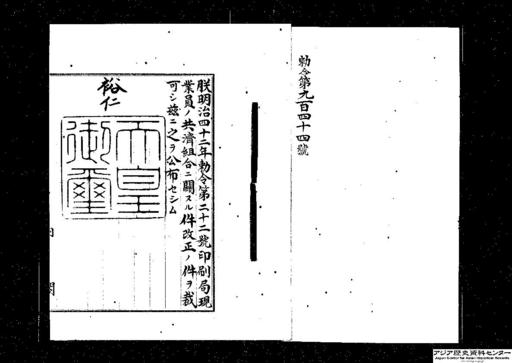 勅令第九百四十四號
朕明治四十二年勅令第二十二號印刷局現
業員ノ共濟組合ニ關スル件改正ノ件ヲ裁
可シ茲ニ之ヲ公布セシム
裕仁
天皇
御璽
内
閣
アジア歴史資料センター
Japan Center for Asian Historical Records